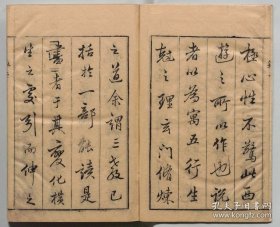 極心性不驚此西
遊之所以作也說
者以為寓五行生
尅之理玄門修煉
之道余謂三教已
括於一部能讀是
書者于其變化橫
生之處引而伸之